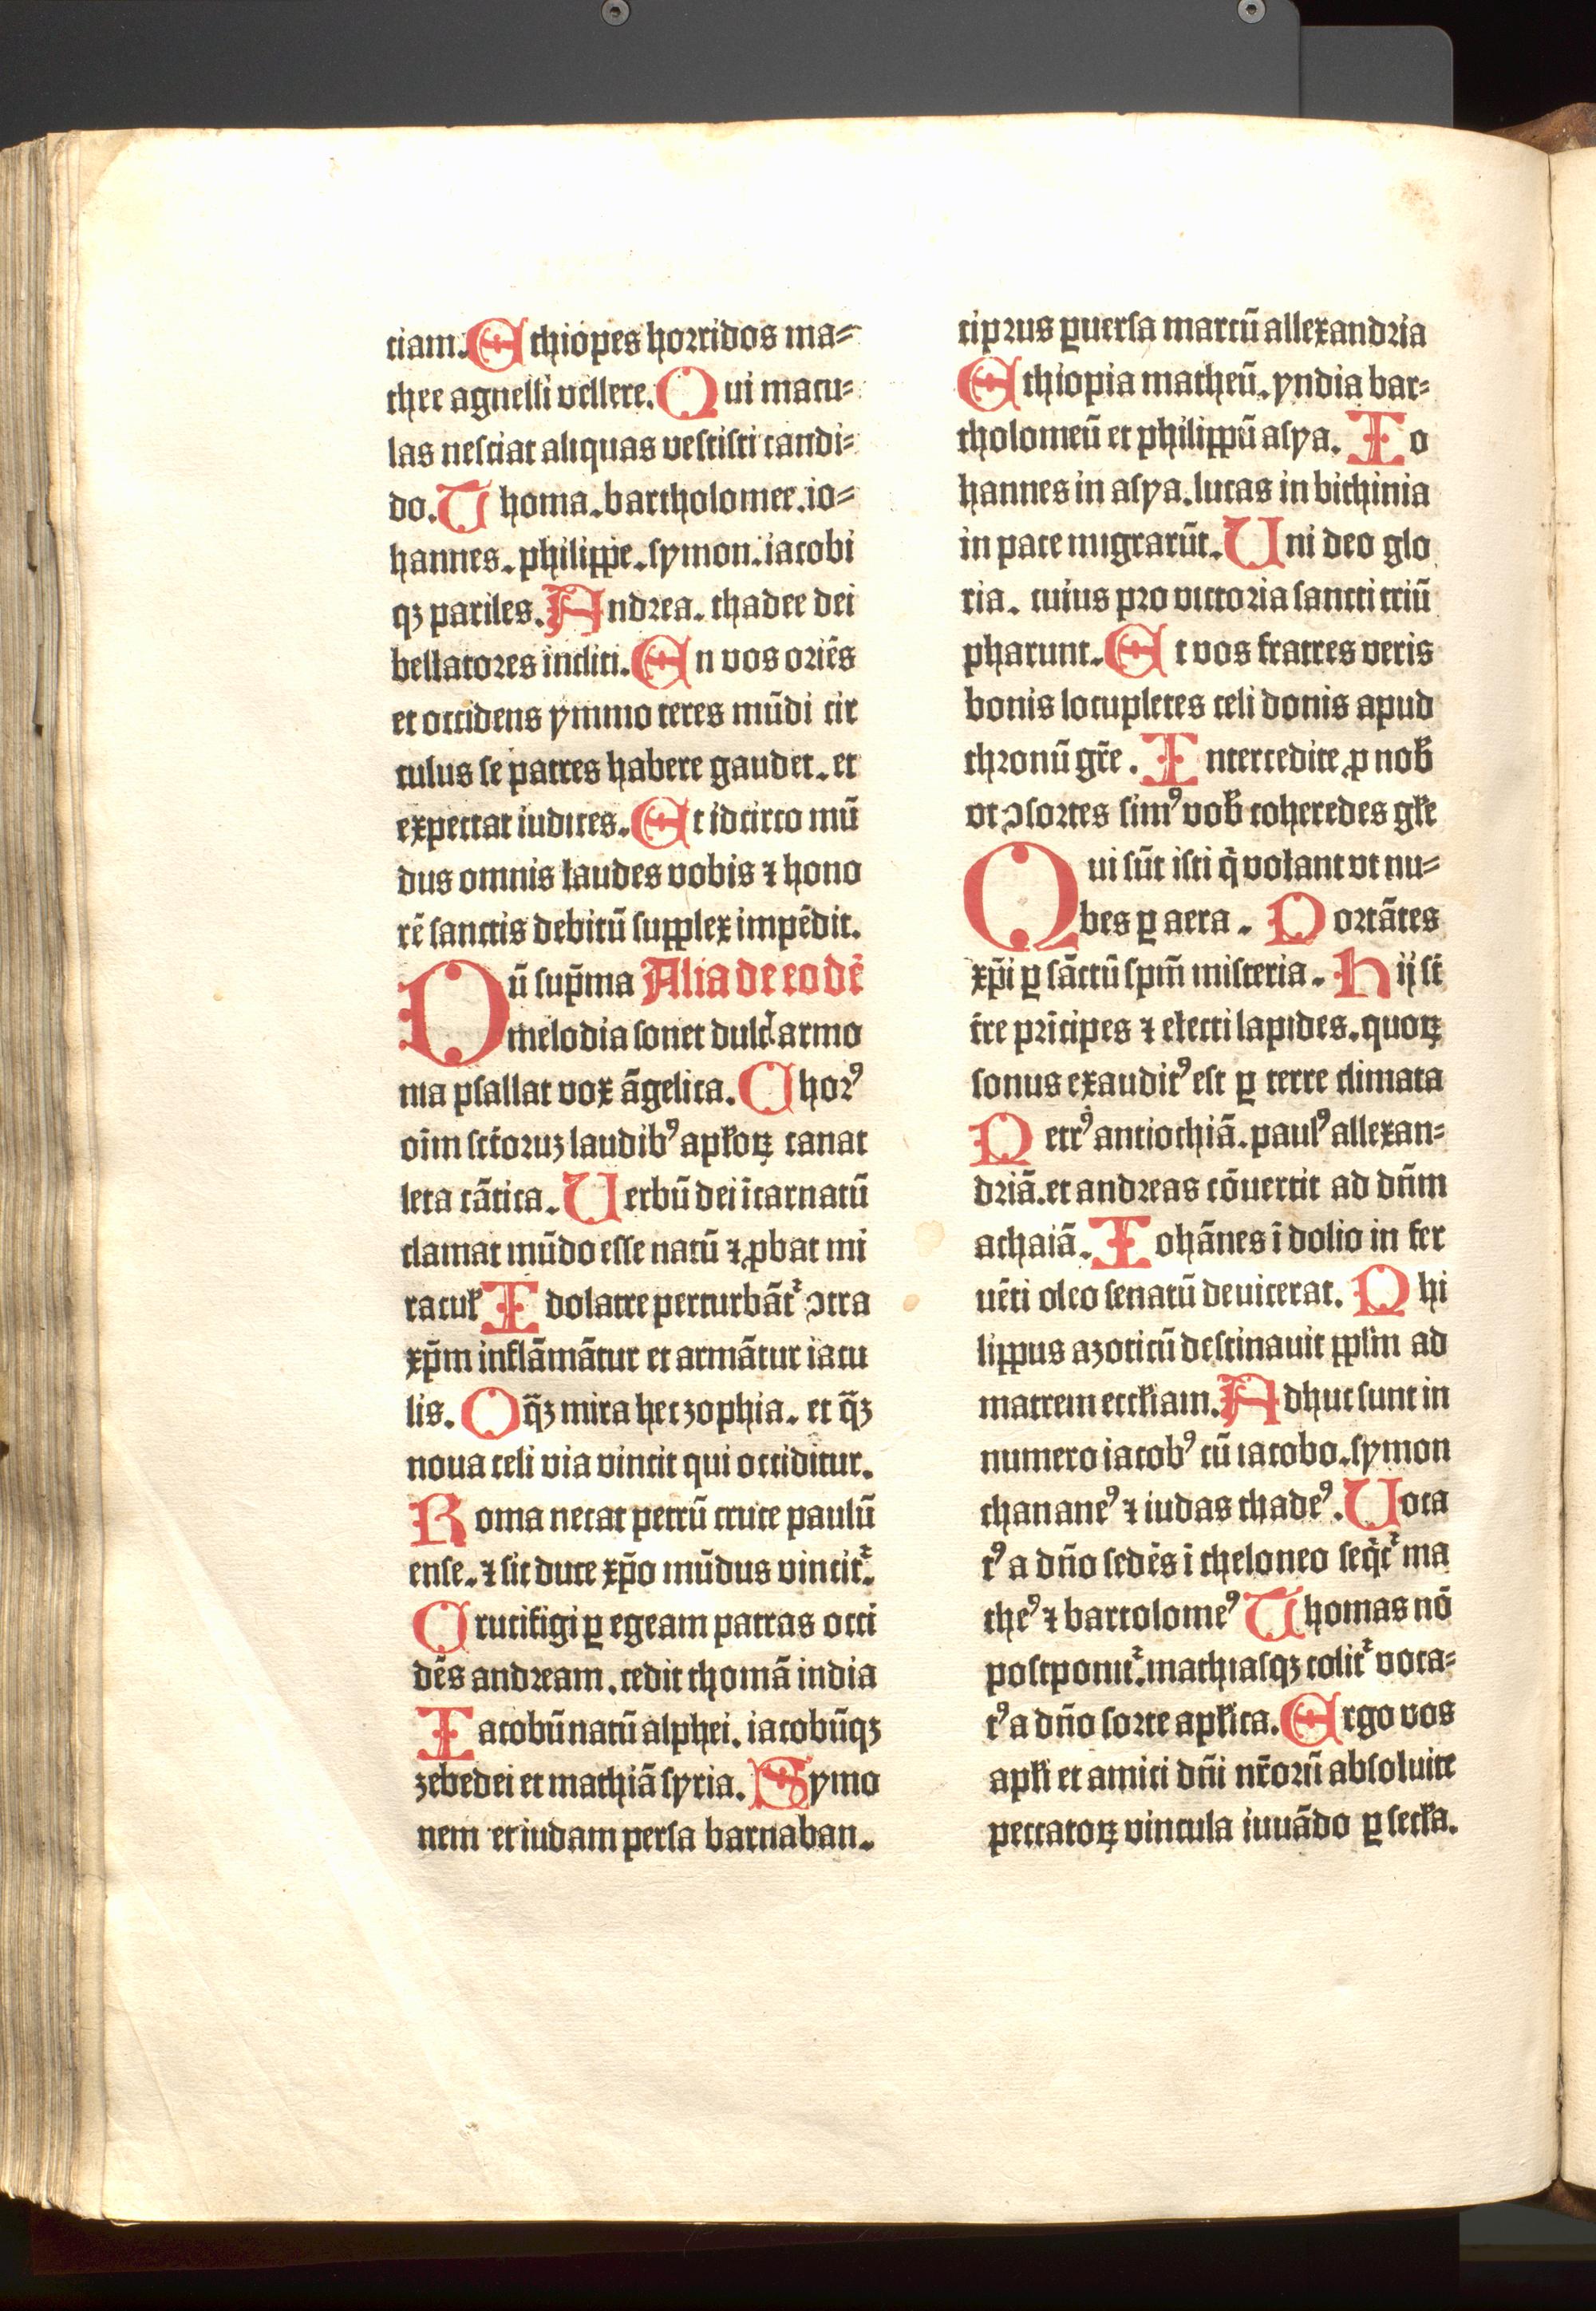 ciam. Ethiopes horridos ma⸗
thee agnelli vellere. Qui macu⸗
las nesciat aliquas vestisti candi⸗
do. Thoma. bartholomee. io⸗
hannes. philippe. symon. iacobi
qꝫ pariles. Andrea. thadee dei
bellatores incliti. En vos oriēs
et occidens ymmo teres mūdi cir
culus se patres habere gaudet. et
expectat iudices. Et idcirco mū
dus omnis laudes vobis ⁊ hono
rē sanctis debitū supplex impēdit.
Dū sup̄ma Alia de eodē
melodia sonet dulci armo
nia psallat vox āgelica. Chorꝰ
oīm sc̄toruꝫ laudibꝰ apłoꝝ canat
leta cātica. Verbū dei īcarnatū
clamat mūdo esse natū ⁊ ꝓbat mi
racuł Idolatre perturbāt᷑ ↄtra
xp̄m inflāmātur et armātur iacu
lis. O q̄ꝫ mira hec zophia. et q̄ꝫ
noua celi via vincit qui occiditur.
Roma necat petrū cruce paulū
ense. ⁊ sic duce xp̄o mūdus vincit᷑.
Crucifigi ꝑ egeam patras occi
dēs andream. cedit thomā india
Iacobū natū alphei. iacobūqꝫ
zebedei et mathiā syria. Symo
nem et iudam persa barnaban.
ciprus ꝑuersa marcū allexandria
Ethiopia matheū. yndia bar⸗
tholomeū et philippū asya. Io
hannes in asya. lucas in bithinia
in pace migrarūt. Uni deo glo
ria. cuius pro victoria sancti triū
pharunt. Et vos fratres veris
bonis locupletes celi donis apud
thronū gr̄e. Intercedite ꝓ nob̄
vt ↄsortes simꝰ vob̄ coheredes głe
Qui sūt isti q̄ volant vt nu⸗
bes ꝑ aera. Portātes
xp̄i ꝑ sāctū sp̄m misteria. Hij st̄
t̄re prīcipes ⁊ electi lapides. quoꝝ
sonus exauditꝰ est ꝑ terre climata
Petrꝰ antiochiā. paulꝰ allexan⸗
driā. et andreas cōuertit ad dn̄m
achaiā. Iohānes ī dolio in fer
uēti oleo senatū deuicerat. Phi
lippus azoticū destinauit pplm̄ ad
matrem eccłiam. Adhuc sunt in
numero iacobꝰ cū iacobo. symon
chananeꝰ ⁊ iudas thadeꝰ. Uoca
tꝰ a dn̄o sedēs ī theloneo seq̄t᷑ ma
theꝰ ⁊ bartolomeꝰ Thomas nō
postponit᷑. mathiasqꝫ colit᷑ voca⸗
tꝰ a dn̄o sorte apłica. Ergo vos
apłi et amici dn̄i nr̄orū absoluite
peccatoꝝ vincula iuuādo ꝑ secła.